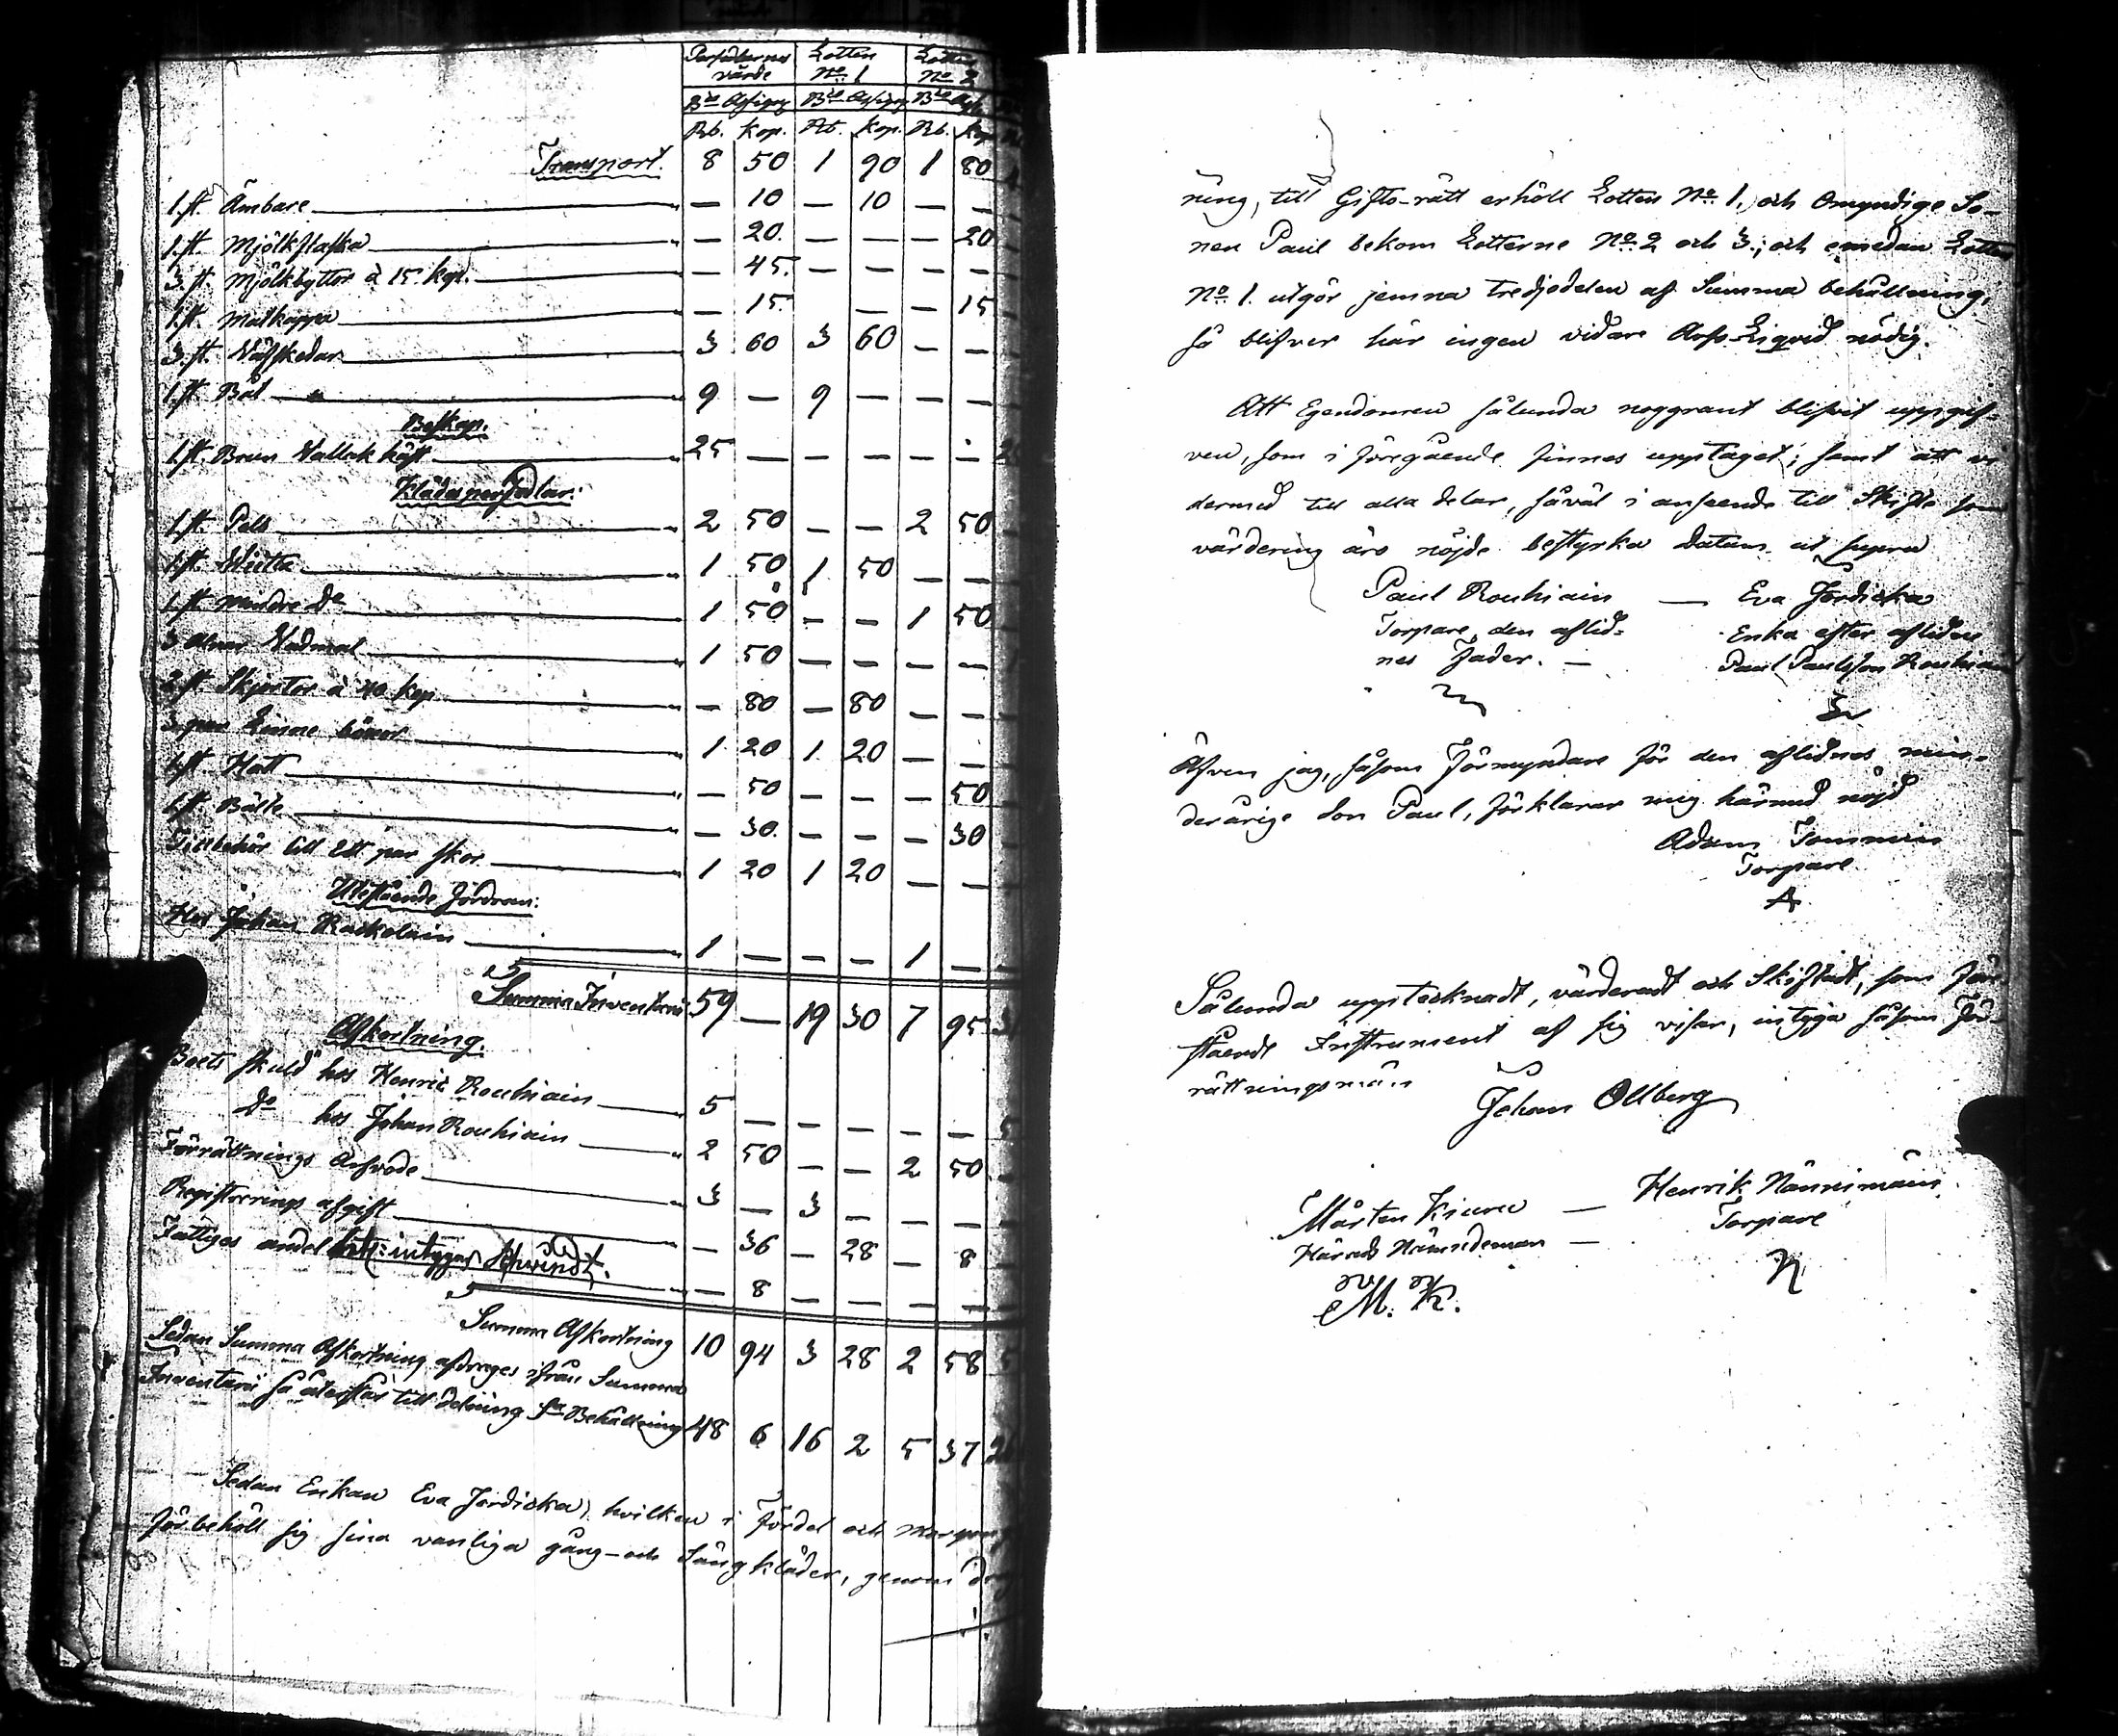 Persedlarnes värde | Lotten No 1 | Lotten No 2
Bco Assign | Bco Assign | Bco Ass.
Rb. | Kop. | Rb. | Kop. | Rb. | Kop
Transport. 8 50 1 90 1 80
1. st. Ämbare — 10 — 10 — —
1. st. Mjölkflaska — 20. — — — 20
3. st. Mjölkbyttor à 15. kop. — 45. — — — —
1. st. Matkappa — 15. — — 15
3. st. Wäfskedar 3 60 3 60 — —
1. st. Båt 9 — 9 — — —
Boskap.
1. st. Brun Vallak häst 25 — — — — —
Klädespersedlar.
1. st. Pels 2 50 — — 2 50
1. st. 1 50 1 50 — —
1. st. mindre do 1 50 — — 1 50
3 alnar Vadmal 1 50 — — — —
2. st. Skjortor à 40 kop — 80 — 80 — —
3. par Linne böxor 1 20 1 20 — —
1. st. Hatt — 50 — — — 50
1. st. Bälte — 30. — — — 30
Tillbehör till Ett par skor 1 20 1 20 — —
Utestående Fordran.
Hos Johan 1 — — — 1 —
Summa Inventarii 59 — 19 30 7 95
Afkortning.
Boets skuld hos Henric Rouhiain 5 — — — — —
do hos Johan Rouhiain 2 50 — — 2 50
Förrättnings Arfvode 3 — 3 — — —
Registrerings afgift — 36 — 28 — 8
Fattiges andel intygar — 8 — — — —
Summa Afkortning 10 94 3 28 2 58
Sedan Summa Afkortning afdrages ifrån Summa
Inventarii så återstår till delning Sa Behållning 48 6 16 2 5 37
Sedan Enkan Eva Jordicka, hvilken i Fördel och
förbehöll sig sina vanliga gång- och Sängkläder, genom
ning, till Gifto-rätt erhöll Lotten No 1. och Omyndige So-
nen Paul bekom Lotterne No 2 och 3.; och emedan Lotten
No 1. utgör jemna tredjedelen af Summa behållning,
så blifver här ingen vidare Arfs-Liqvid nödig.
Att Egendomen sålunda noggrant blifvit uppgif-
ven, som i föregående finnes upptaget; samt att vi
dermed till alla delar, såväl i anseende till Skifte som
värdering äro nöjde bestyrka Datum ut supra
Paul Rouhiain — Eva Jordicka
Torpare, den aflid- Enka efter aflidne
nes Fader. — Paul Paulsson Rouhiain
Äfven jag, såsom Förmyndare för den aflidnes min-
derårige Son Paul, förklarar mig härmed nöjd
Adam Tommin
Torpare
A
Sålunda upptecknadt, värderadt och Skiftadt, som för-
stående Instrument af sig visar, intyga såsom För-
rättningsmän
Johan Ollberg
Mårten Kiuru — Henrik
Härads Nämndeman — Torpare
M. K.